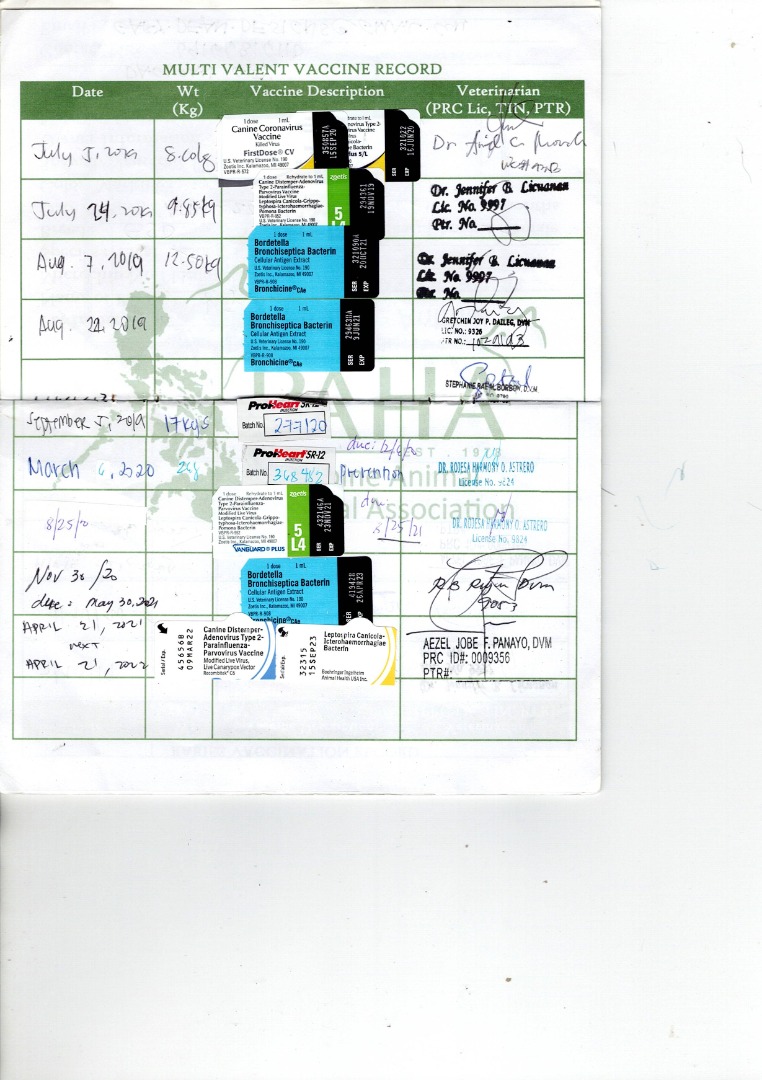 MULTI VALENT VACCINE RECORD
Date Wt (Kg) Vaccine Description Veterinarian (PRC Lic, TIN, PTR)
July 5, 2019
1 dose 1 mL
Canine Coronavirus
Vaccine
Killed Virus
FirstDose® CV
U.S. Veterinary License No. 190
Zoetis Inc. Kalamazoo, MI 49007
15SEP20
321022
16JUN20
SER EXP
July 24, 2019 9.85kg
1 dose Rehydrate to 1 mL
Canine Distemper-Adenovirus
Type 2-Parainfluenza-
Parvovirus Vaccine
Modified Live Virus
Leptospira Canicola-Grippo-
typhosa-Icterohaemorrhagiae-
Pomona Bacterin
zoetis
5
L4
15NOV19
Dr. Jennifer B. Licuanan
Lic. No. 9997
Ptr. No.
Aug. 7, 2019 12.50kg
1 dose 1 mL
Bordetella
Bronchiseptica Bacterin
Cellular Antigen Extract
U.S. Veterinary License No. 190
Zoetis Inc. Kalamazoo, MI 49007
Bronchicine® CAe
321090A
SER EXP
Dr. Jennifer B. Licuanan
Lic. No. 9997
Ptr. No.
Aug. 22 2019
1 dose 1 mL
Bordetella
Bronchiseptica Bacterin
Cellular Antigen Extract
U.S. Veterinary License No. 190
Zoetis Inc. Kalamazoo, MI 49007
Bronchicine® CAe
3JUN21
SER EXP
GRETCHIN JOY P. DAILEG, DVM
LIC. NO.: 9326
PTR NO.:
PAHA
September 5, 2019 17kgs
ProHeart SR-12
INJECTION
Batch No. 277120
March 6, 2020
ProHeart SR-12
INJECTION
Batch No. 368482
Prevention
DR. RODESA HARMONY O. ASTRERO
License No. 9824
1 dose Rehydrate to 1 mL
Canine Distemper-Adenovirus
Type 2-Parainfluenza-
Parvovirus Vaccine
Modified Live Virus
Leptospira Canicola-Grippo-
typhosa-Icterohaemorrhagiae-
Pomona Bacterin
VANGUARD® PLUS
zoetis
5
L4
432146A
23NOV21
SER EXP
due
8/25/21
DR. RODESA HARMONY O. ASTRERO
License No. 9824
Nov 30/20
due: May 30, 2021
1 dose 1 mL
Bordetella
Bronchiseptica Bacterin
Cellular Antigen Extract
U.S. Veterinary License No. 190
Zoetis Inc. Kalamazoo, MI 49007
26APR23
SER EXP
APRIL 21, 2021
next
APRIL 21, 2022
Serial/Exp.
456568
09MAR22
Canine Distemper-
Adenovirus Type 2-
Parainfluenza-
Parvovirus Vaccine
Modified Live Virus,
Live Canarypox Vector
Recombitek® C6
Serial/Exp.
32315
15SEP23
Leptospira Canicola-
Icterohaemorrhagiae
Bacterin
Boehringer Ingelheim
Animal Health USA Inc.
AEZEL JOBE F. PANAYO, DVM
PRC ID#: 0009356
PTR#: